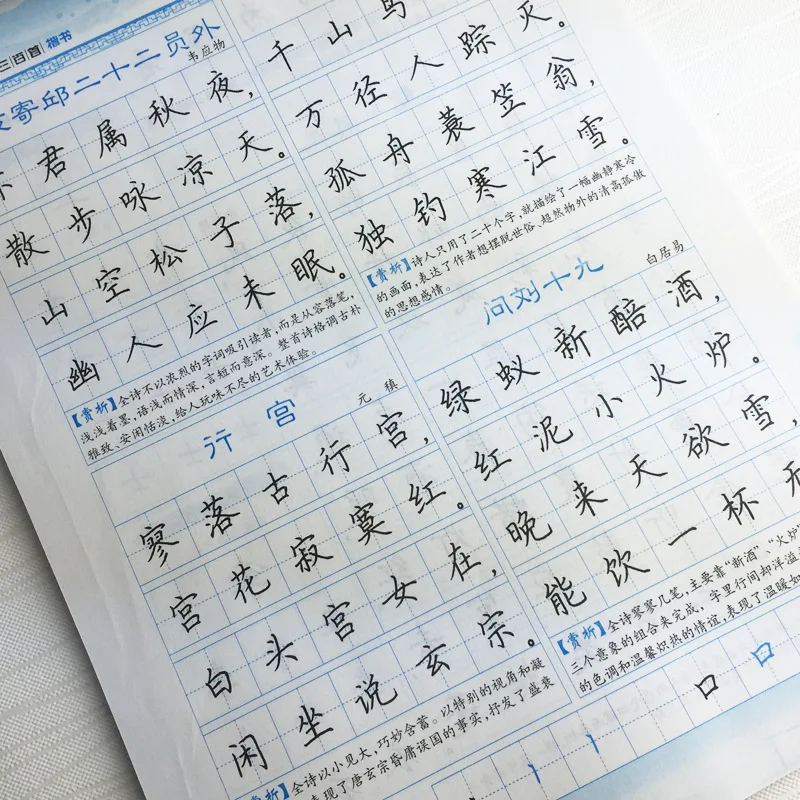 三百首 楷书
寄邱二十二员外
韦应物
君属秋夜，
散步咏凉天。
山空松子落，
幽人应未眠。
【赏析】全诗不以浓烈的字词吸引读者，而是从容落笔，
浅浅着墨，语浅而情深，言短而意深。整首诗格调古朴
雅致、安闲恬淡，给人玩味不尽的艺术体验。
行宫
元稹
寥落古行宫，
宫花寂寞红。
白头宫女在，
闲坐说玄宗。
【赏析】全诗以小见大，巧妙含蓄。以特别的视角和凝
表现了唐玄宗昏庸误国的事实，抒发了盛衰
千山鸟
万径人踪灭。
孤舟蓑笠翁，
独钓寒江雪。
【赏析】诗人只用了二十个字，就描绘了一幅幽静寒冷
的画面，表达了作者想摆脱世俗、超然物外的清高孤傲
的思想感情。
问刘十九
白居易
绿蚁新醅酒，
红泥小火炉。
晚来天欲雪，
能饮一杯无
【赏析】全诗寥寥几笔，主要靠“新酒”、“火炉”
三个意象的组合来完成，字里行间却洋溢
的色调和温馨炽热的情谊，表现了温暖如
口口